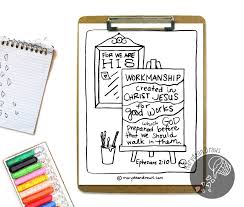 FOR WE ARE
HIS
WORKMANSHIP
created in
CHRIST JESUS
for
good works
which GOD
prepared before
that we should
walk in them.
Ephesians 2:10
© marydeandraws.com